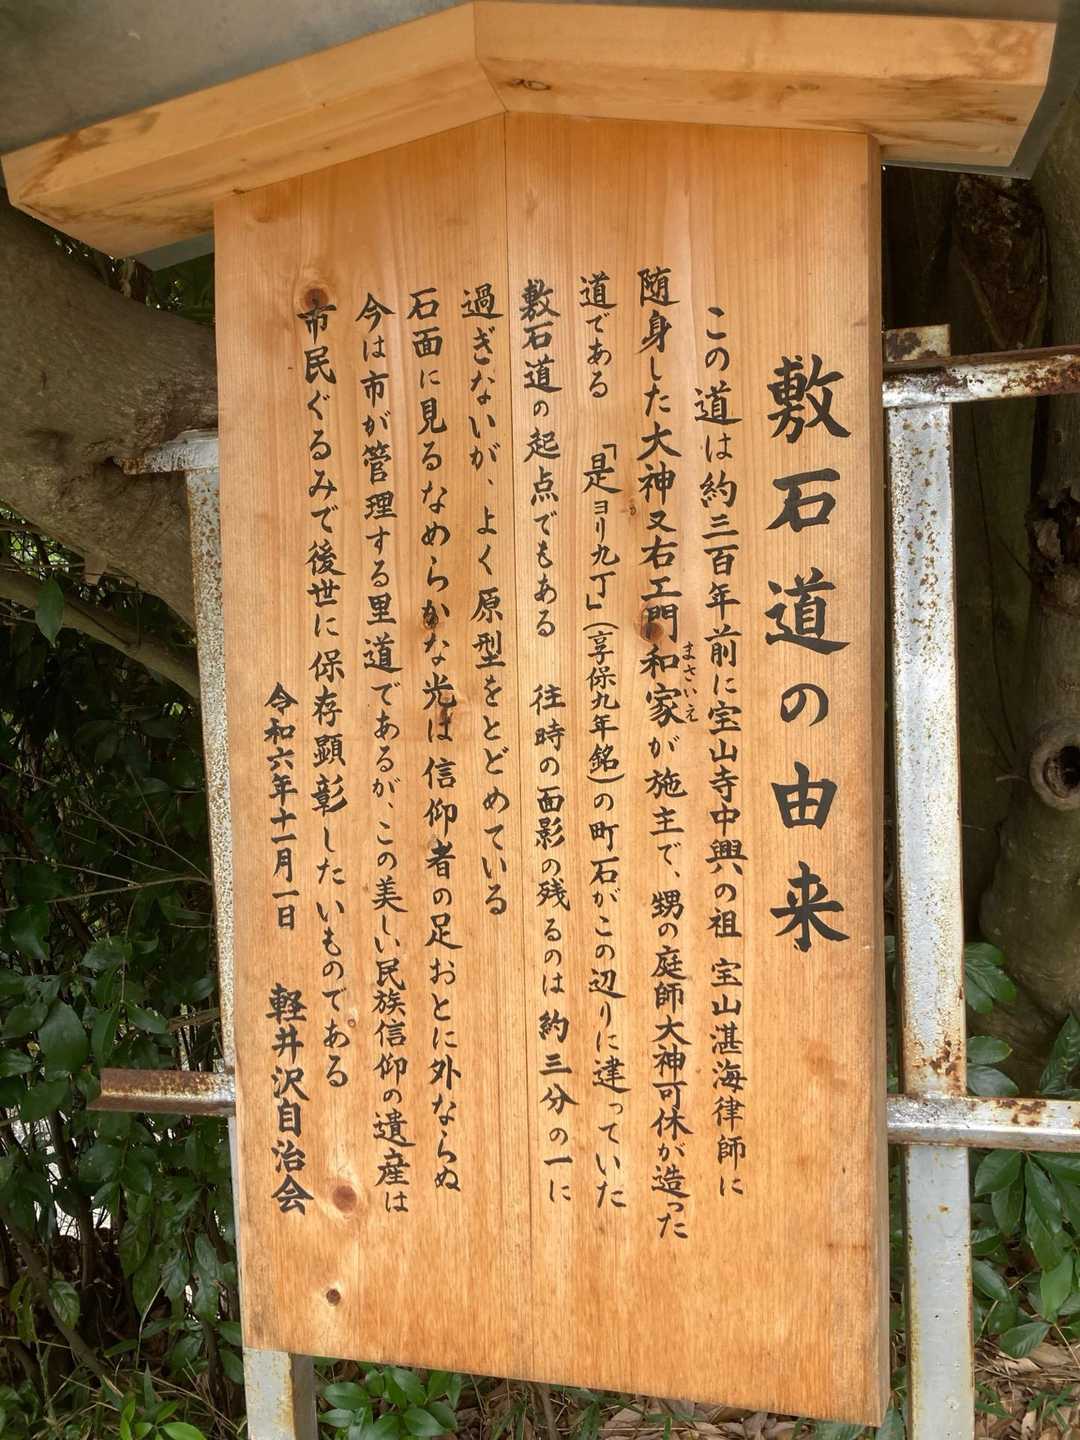 敷石道の由来
この道は約三百年前に宝山寺中興の祖 宝山湛海律師に
随身した大神又右エ門和家が施主で、甥の庭師大神可休が造った
まさいえ
道である 「是ヨリ九丁」(享保九年銘)の町石がこの辺りに違っていた
敷石道の起点でもある 往時の面影の残るのは約三分の一に
過ぎないが、よく原型をとどめている
石面に見るなめらかな光は信仰者の足おとに外ならぬ
今は市が管理する里道であるが、この美しい民族信仰の遺産は
市民ぐるみで後世に保存顕彰したいものである
令和六年十一月一日 軽井沢自治会